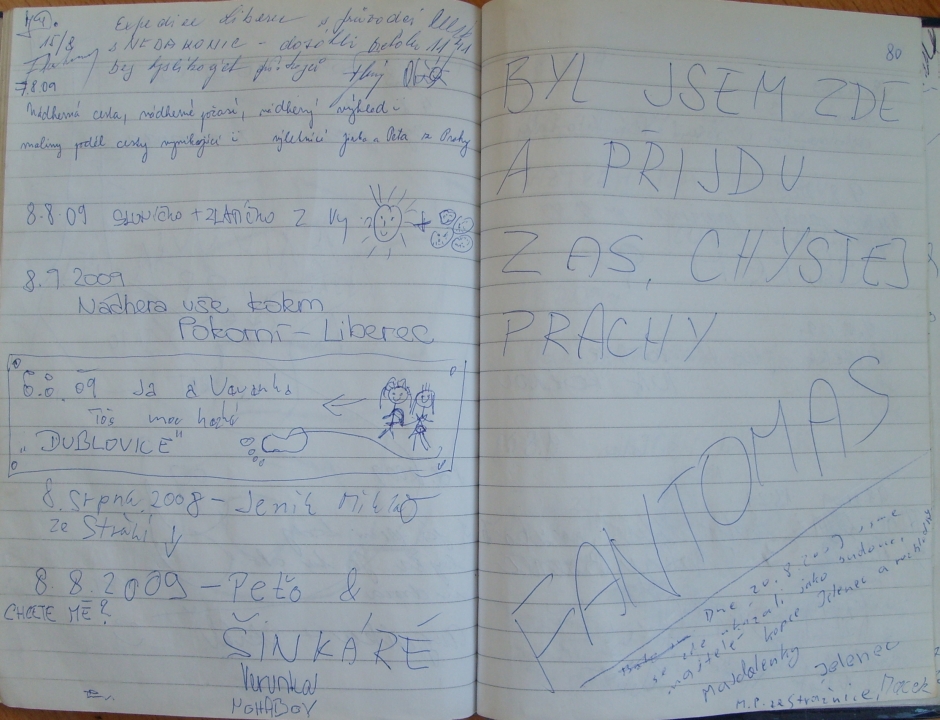 Expedice Liberec s průvodci
15/8
z NEDAKONIC - dosáhli
bez
7.8.09
Nádherná cesta, nádherné počasí, nádherný výhled i
maliny podél cesty vynikající i výletníci Jirka a Péťa z Prahy
8.8.09 SLUNÍČKO + ZLATÍČKO Z
8.9 2009
Nádhera vše kolem
Pokorní - Liberec
6.8.09 Já a Verunka
moc hezké
"DUBLOVICE"
8. Srpna. 2008 - Jeník
ze Strání
8.8.2009 - Peťo &
CHCETE MĚ?
ŠINKÁRÉ
Verunka
80
BYL JSEM ZDE
A PŘIJDU
ZAS, CHYSTEJ
PRACHY
FANTOMAS
Dne 20.8.2009 jsme
se zde ukázali jako budoucí
majitelé kopce Jelenec a rozhledny
Majdalenky
Jelenec
M.P. ze Strážnice, Macek